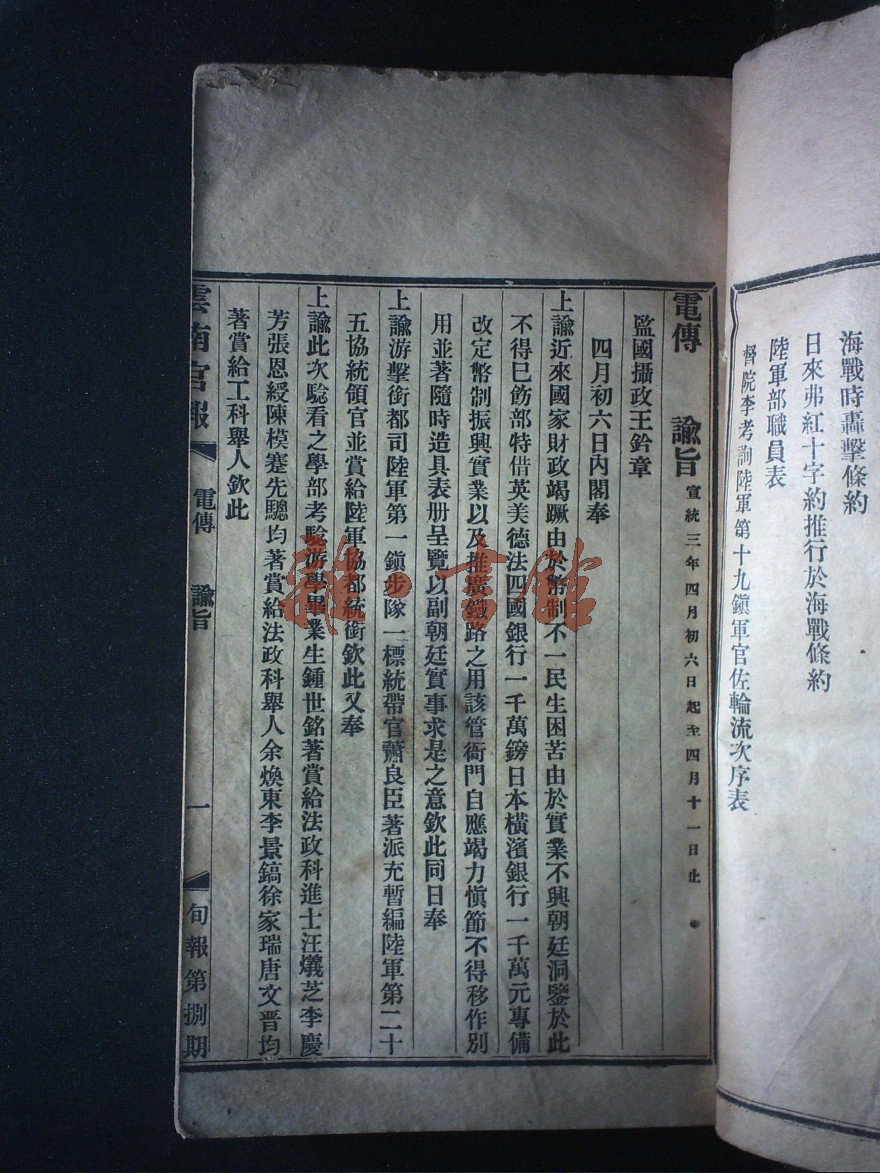 海戰時轟擊條約
日來弗紅十字約推行於海戰條約
陸軍部職員表
督院李考詢陸軍第十九鎭軍官佐輪流次序表
電傳 諭旨 宣統三年四月初六日起至四月十一日止
監國攝政王鈐章
四月初六日內閣奉
上諭近來國家財政竭蹶由於幣制不一民生困苦由於實業不興朝廷洞鑒於此
不得已飭部特借英美德法四國銀行一千萬鎊日本橫濱銀行一千萬元專備
改定幣制振興實業以及推廣鐵路之用該管衙門自應竭力愼節不得移作別
用並著隨時造具表册呈覽以副朝廷實事求是之意欽此同日奉
上諭游擊銜都司陸軍第一鎭步隊一標統帶官蕭良臣著派充暫編陸軍第二十
五協統領官並賞給陸軍協都統銜欽此又奉
上諭此次驗看之學部考驗游學畢業生鍾世銘著賞給法政科進士汪爔芝李慶
芳張恩綬陳模蹇先驄均著賞給法政科舉人余煥東李景鎬徐家瑞唐文晋均
著賞給工科舉人欽此
雲南官報 電傳 諭旨 一 旬報第捌期
雜·書館